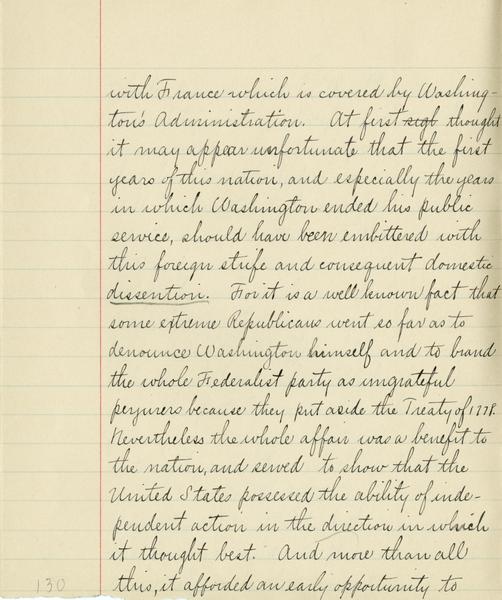 with France which is covered by Washing-
ton's Administration. At first sigh thought
it may appear unfortunate that the first
years of this nation, and especially the years
in which Washington ended his public
service, should have been embittered with
this foreign strife and consequent domestic
dissention. For it is a well known fact that
some extreme Republicans went so far as to
denounce Washington himself and to brand
the whole Federalist party as ungrateful
perjurers because they put aside the Treaty of 1778.
Nevertheless the whole affair was a benefit to
the nation, and served to show that the
United States possessed the ability of inde-
pendent action in the direction in which
it thought best. And more than all
this, it afforded an early opportunity to
130